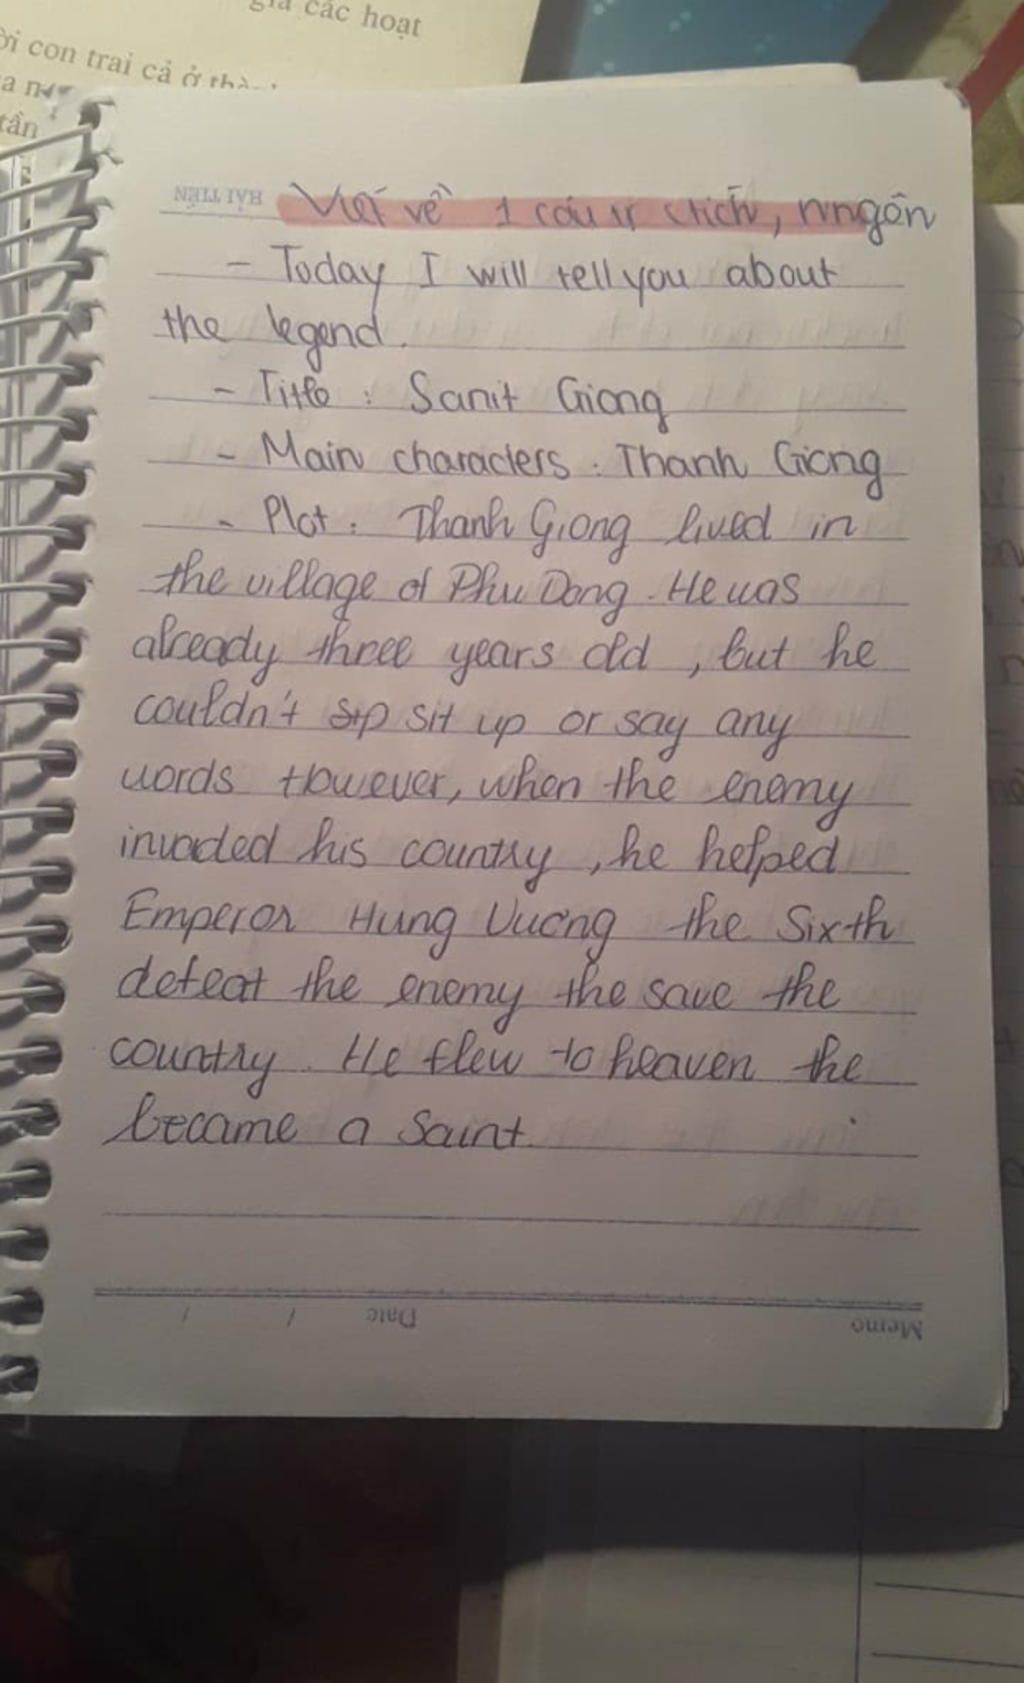 giá các hoạt
ời con trai cả ở
tần
HẢI TIẾN
Viết về 1 câu
- Today I will tell you about
the legend.
- Title : Sanit Giong
- Main characters : Thanh Giong
- Plot : Thanh Giong lived in
the village of Phu Dong. He was
already three years old , but he
couldn't sip sit up or say any
words However, when the enemy
invaded his country , he helped
Emperor Hung Vuong the Sixth
defeat the enemy the save the
country . He flew to heaven the
became a Saint.
Memo Date / /